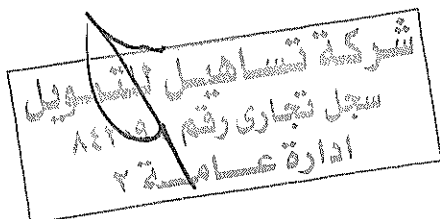 شركة تساهيل للتمويل
سجل تجارى رقم
ادارة عامة ٢